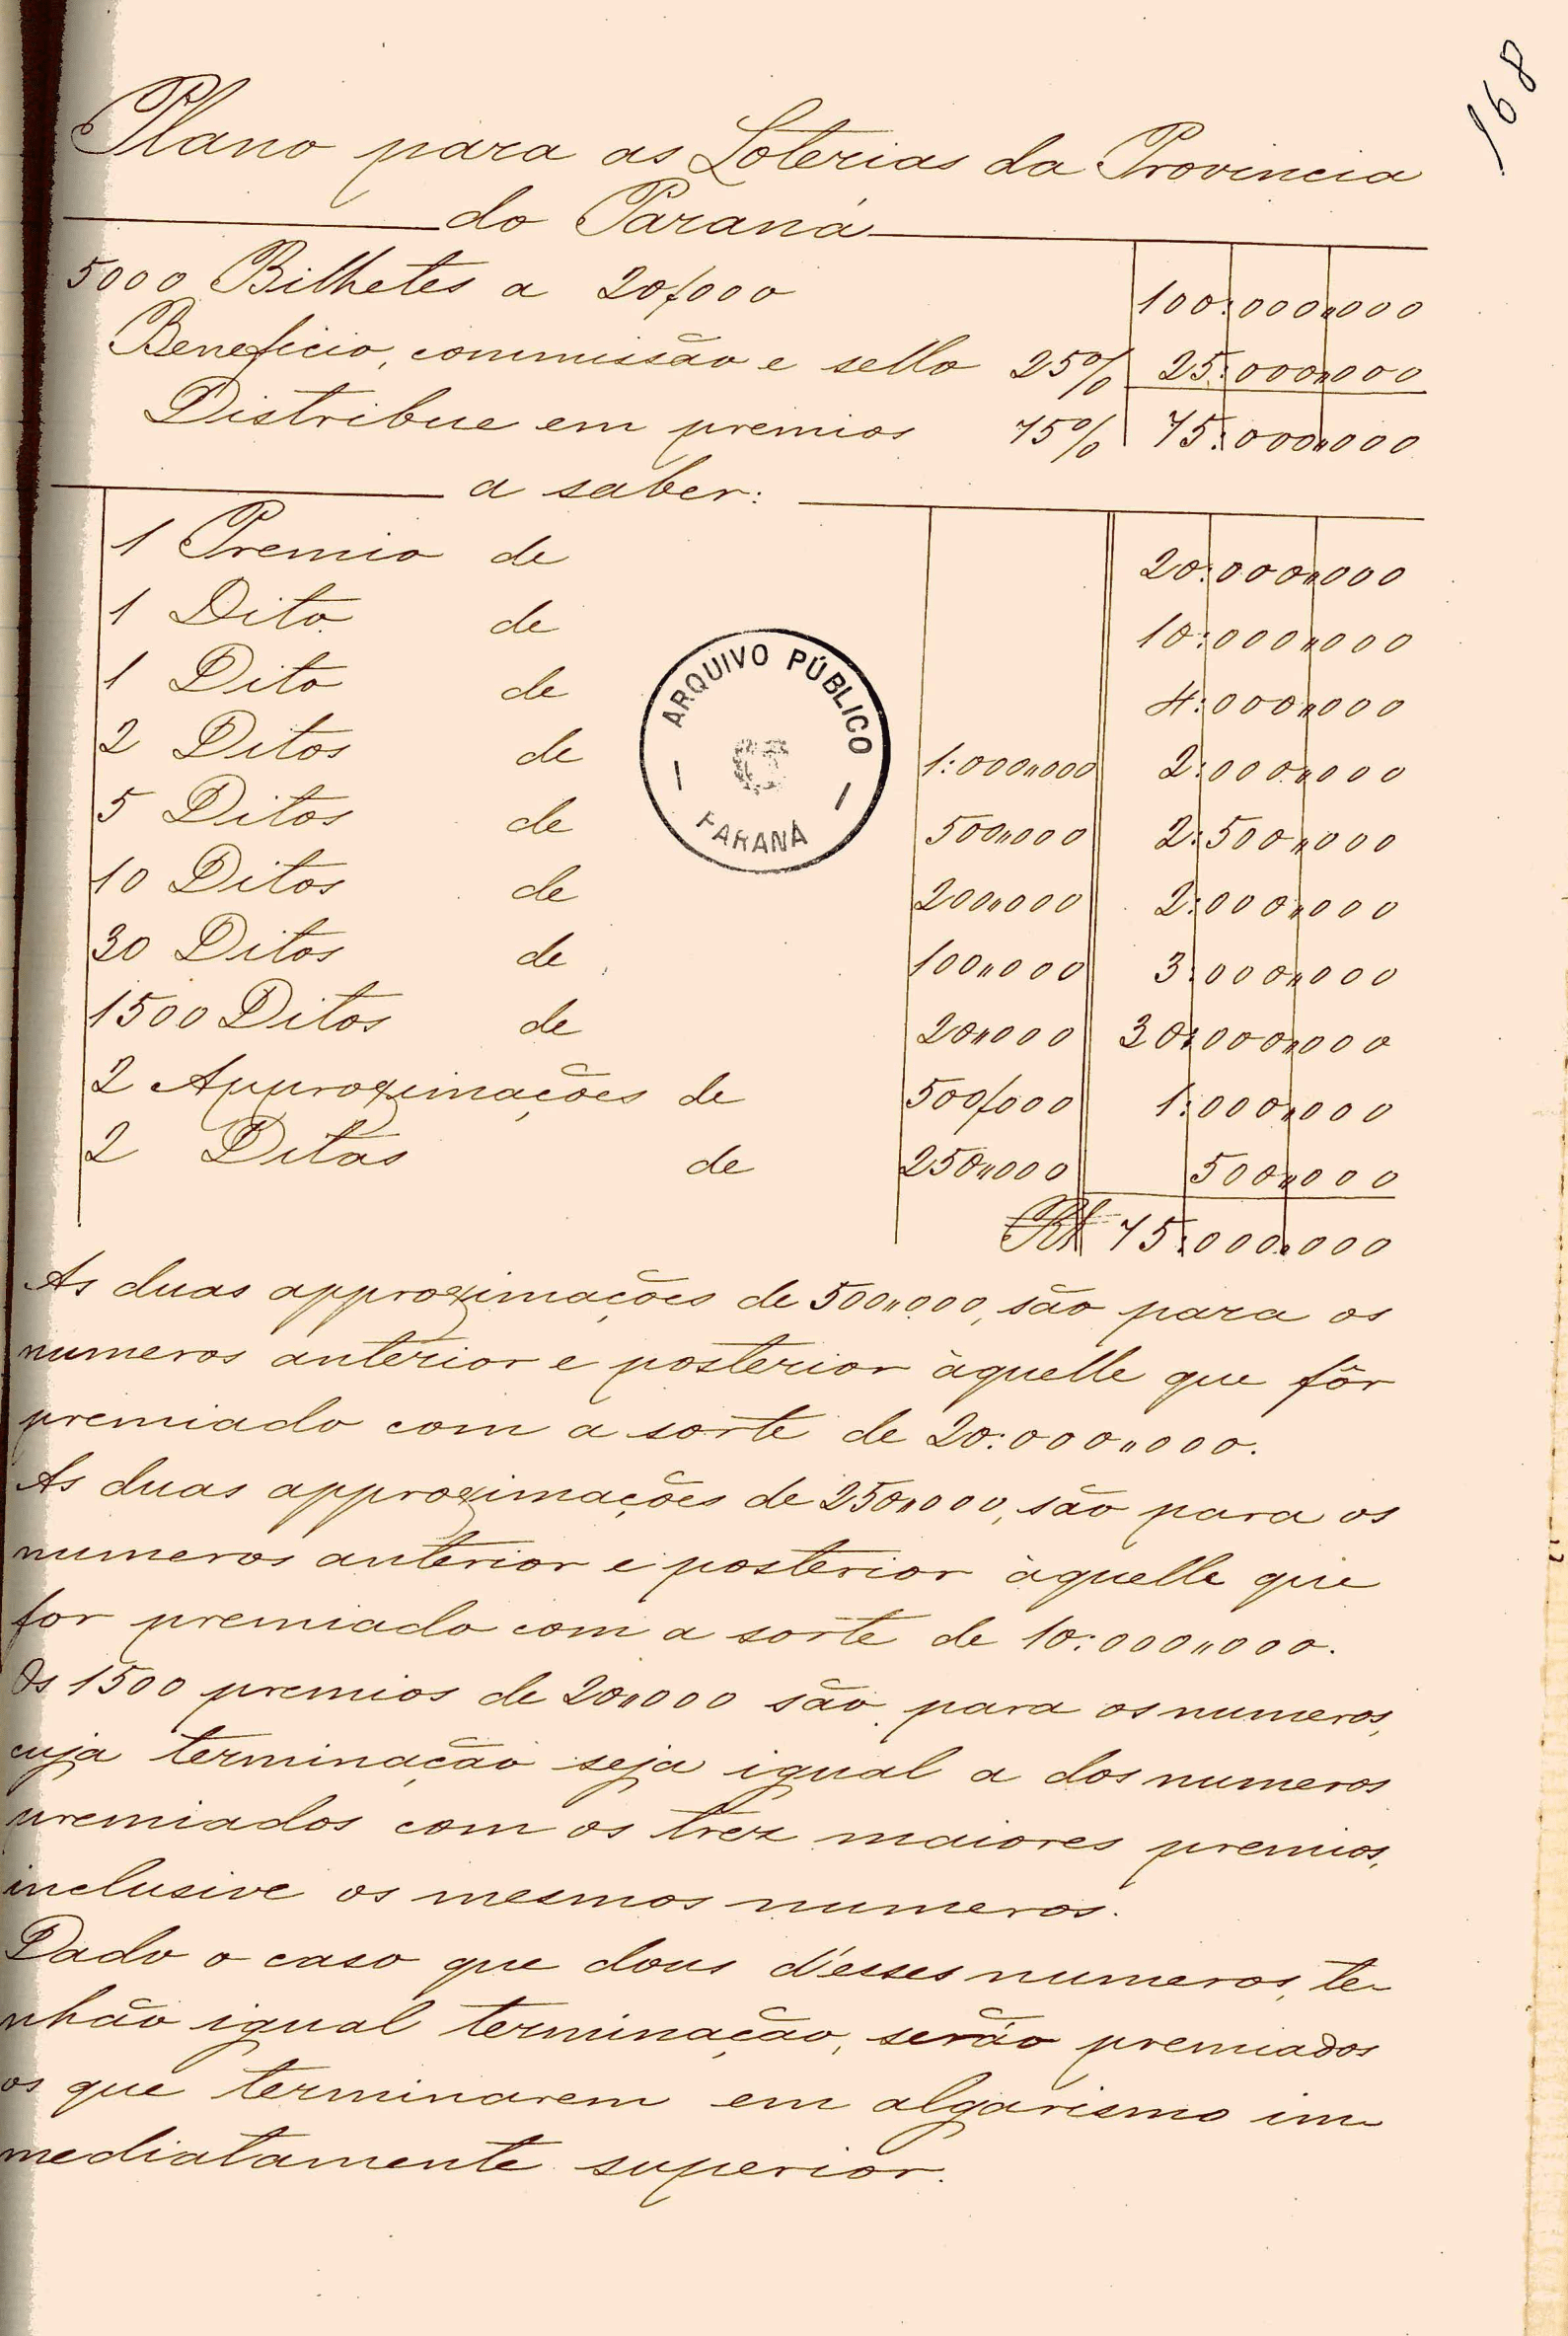 168
Plano para as Loterias da Provincia
do Paraná
5000 Bilhetes a 20$000 100:000,,000
Beneficio, commissão e sello 25% 25:000,,000
Distribue em premios 75% 75:000,,000
a saber:
1 Premio de 20:000,,000
1 Dito de 10:000,,000
1 Dito de 4:000,,000
2 Ditos de 1:000,,000 2:000,,000
5 Ditos de 500,,000 2:500,,000
10 Ditos de 200,,000 2:000,,000
30 Ditos de 100,,000 3:000,,000
1500 Ditos de 20,,000 30:000,,000
2 Approximações de 500$000 1:000,,000
2 Ditas de 250,,000 500,,000
R$ 75:000,,000
ARQUIVO PÚBLICO
— —
PARANÁ
As duas approximações de 500,,000, são para os
numeros anterior e posterior àquelle que fôr
premiado com a sorte de 20:000,,000.
As duas approximações de 250,,000, são para os
numeros anterior e posterior àquelle que
for premiado com a sorte de 10:000,,000.
Os 1500 premios de 20,,000 são para os numeros,
cuja terminação seja igual a dos numeros
premiados com os trez maiores premios,
inclusive os mesmos numeros.
Dado o caso que dous d'esses numeros, te-
nhão igual terminação, serão premiados
os que terminarem em algarismo im-
mediatamente superior.